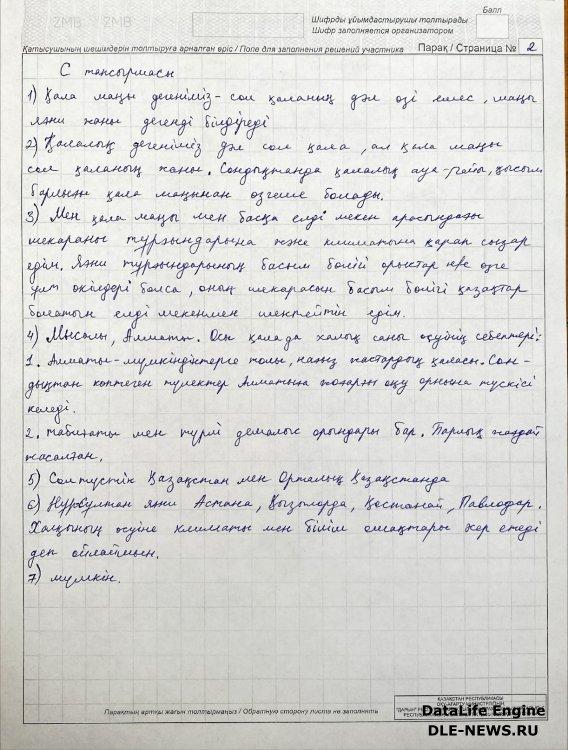 ZMB ZMB
Балл
Шифрды ұйымдастырушы толтырады
Шифр заполняется организатором
Қатысушының шешімдерін толтыруға арналған өріс / Поле для заполнения решений участника Парақ / Страница № 2
С тапсырмасы
1) Қала маңы дегеніміз - сол қаланың дәл өзі емес, маңы
яғни жаны дегенді білдіреді
2) Қалалық дегеніміз дәл сол қала, ал қала маңы
сол қаланың жаны. Сондықтанда қалалық ауа-райы, қысым
барлығы қала маңынан өзгеше болады.
3) Мен қала маңы мен басқа елді мекен арасындағы
шекараны тұрғындарына және климатына қарап сызар
едім. Яғни тұрғындарының басым бөлігі орыстар не өзге
ұлт өкілдері болса, оның шекарасын басым бөлігі қазақтар
болатын елді мекенмен шектейтін едім.
4) Мысалы, Алматы. Осы қалада халық саны өсуінің себептері:
1. Алматы - мүмкіндіктерге толы, нағыз жастардың қаласы. Сон-
дықтан көптеген түлектер Алматыға жоғарғы оқу орнына түскісі
келеді.
2. табиғаты мен түрлі демалыс орындары бар. Барлық жағдай
жасалған.
5) Солтүстік Қазақстан мен Орталық Қазақстанда
6) Нұрсұлтан яғни Астана, Қызылорда, Қостанай, Павлодар.
Халқының өсуіне климаты мен білім ошақтары әсер етеді
деп ойлаймын.
7) мүмкін.
Парақтың артқы жағын толтырмаңыз / Обратную сторону листа не заполнять
ҚАЗАҚСТАН РЕСПУБЛИКАСЫ
ОҚУ-АҒАРТУ МИНИСТРЛІГІНІҢ
DataLife Engine
DLE-NEWS.RU